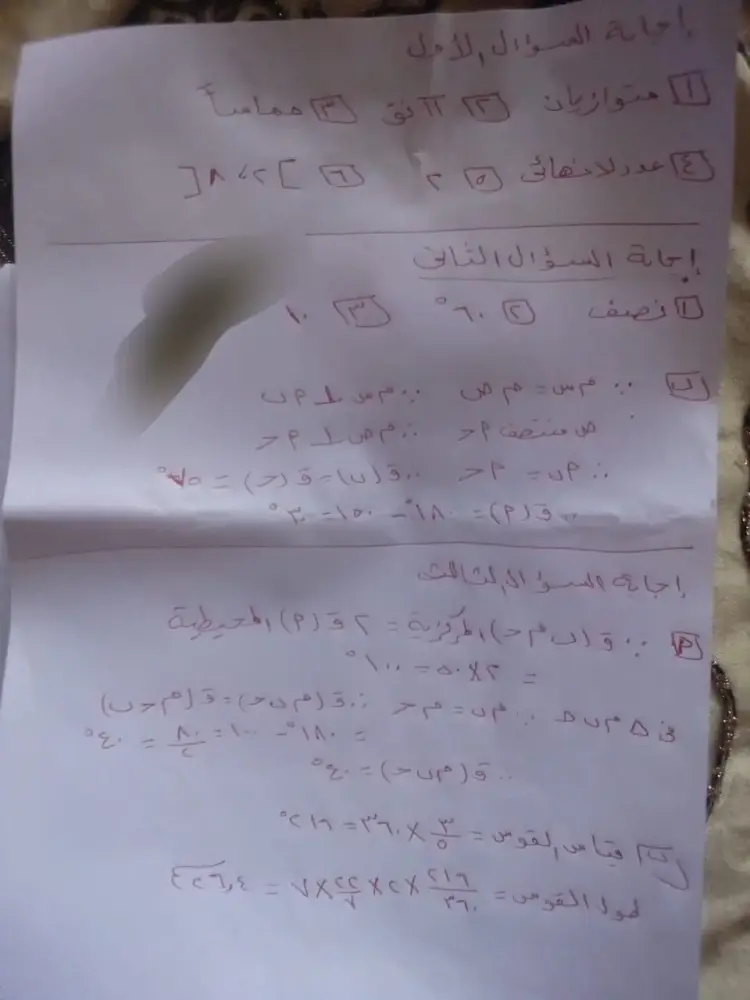 إجابة السؤال الأول
[١] متوازيان [٢] π نق [٣] مماساً
[٤] عدد لانهائى [٥] ٢ [٦] ]٢، ٨[
إجابة السؤال الثانى
[١] نصف [٢] ٦٠° [٣] ١٠
[ب] ∵ م س = م ص ∴ م س ⊥ م ب
ص منتصف م ح ∴ م ص ⊥ م ح
∴ م ب = م ح ∴ ق(ب) = ق(ح) = ٧٥°
∴ ق(م) = ١٨٠° - ١٥٠ = ٣٠°
إجابة السؤال الثالث
[م] ∵ ق(ب م ح) المركزية = ٢ ق(م) المحيطية
= ٢ × ٥٠ = ١٠٠°
فى Δ م ب ح ∵ م ب = م ح ∴ ق(م ب ح) = ق(م ح ب)
= ١٨٠° - ١٠٠ = ٨٠/٢ = ٤٠°
∴ ق(م ب ح) = ٤٠°
[ب] قياس القوس = ٣/٥ × ٣٦٠ = ٢١٦°
طول القوس = ٢١٦/٣٦٠ × ٢ × ٢٢/٧ × ٧ = ٢٦,٤